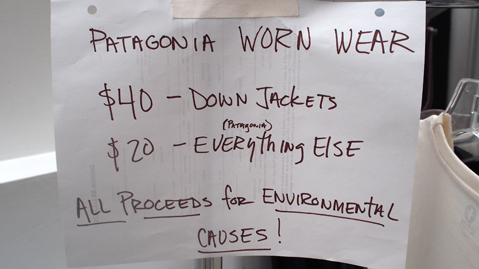 PATAGONIA WORN WEAR
$40 - DOWN JACKETS
(PATAGONIA)
$20 - EVERYTHING ELSE
ALL PROCEEDS for ENVIRONMENTAL
CAUSES!